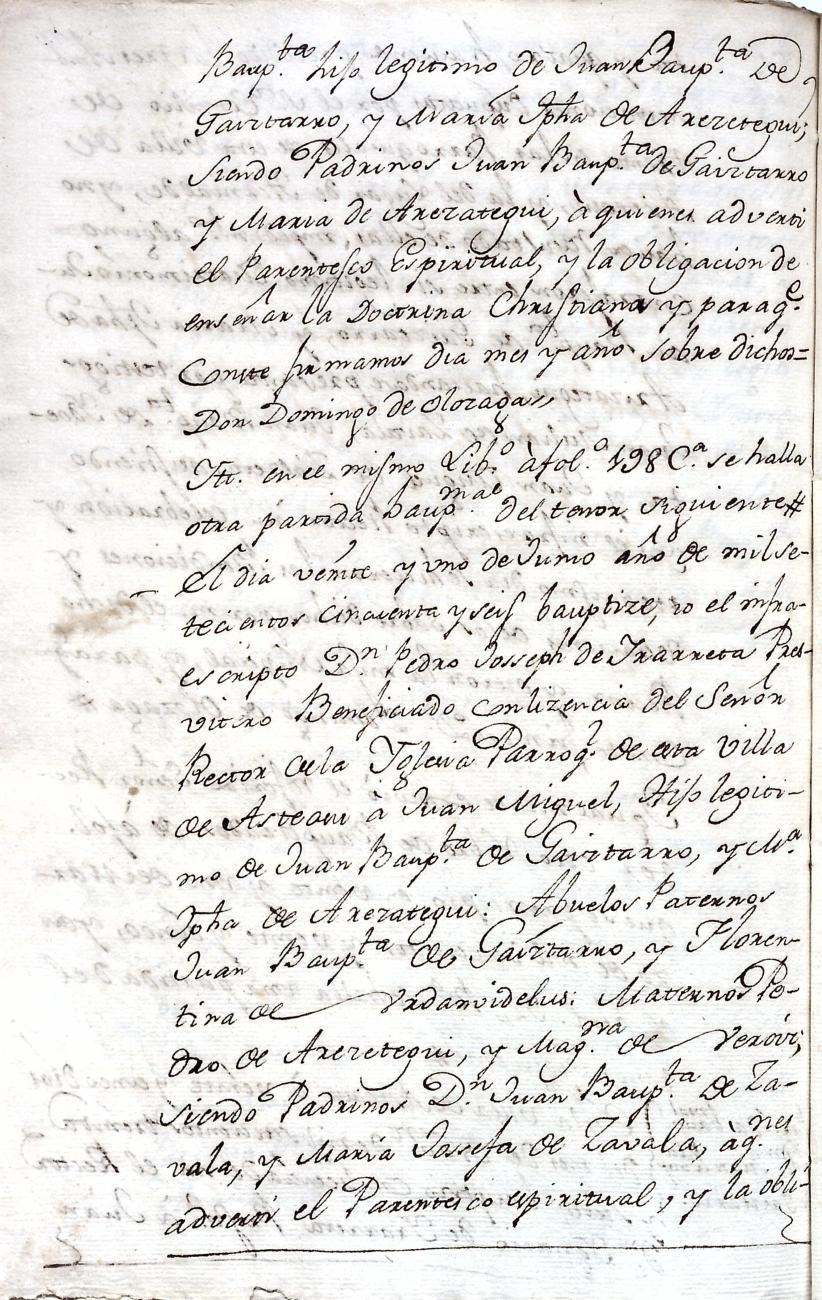 Baup.ta hijo legitimo de Juan Baup.ta de
Gaiztarro, y Maria Jpha de Arezetegui;
siendo Padrinos Juan Baup.ta de Gaiztarro
y Maria de Arezategui, à quienes adverti
el Parentesco Espiritual, y la obligacion de
enseñar la Doctrina Christiana y paraq.e
Conste firmamos dia mes y año sobre dichos=
Don Domingo de Olozaga,,
Itt. en el mismo Lib.o à fol.o 198 C.a se halla
otra partida baup.mal del tenor siguiente#
El dia veinte y uno de Junio año de mil se-
tecientos cincuenta y seis bauptize, io el infra-
escripto D.n Pedro Josseph de Irarreta Pres-
vitero Beneficiado con lizencia del Señor
Rector dela Yglesia Parroq.l de esta Villa
de Asteasu à Juan Miguel, Hijo legiti-
mo de Juan Baup.ta de Gaiztarro, y M.a
Jpha de Arezategui: Abuelos Paternos
Juan Baup.ta de Gaiztarro, y Floren-
tina de Urdanvidelus: Maternos Pe-
dro de Arezetegui, y Mag.na de Verovi;
siendo Padrinos D.n Juan Baup.ta de Za-
vala, y Maria Josefa de Zavala, à q.nes
adverti el Parentesco espiritual, y la obli-